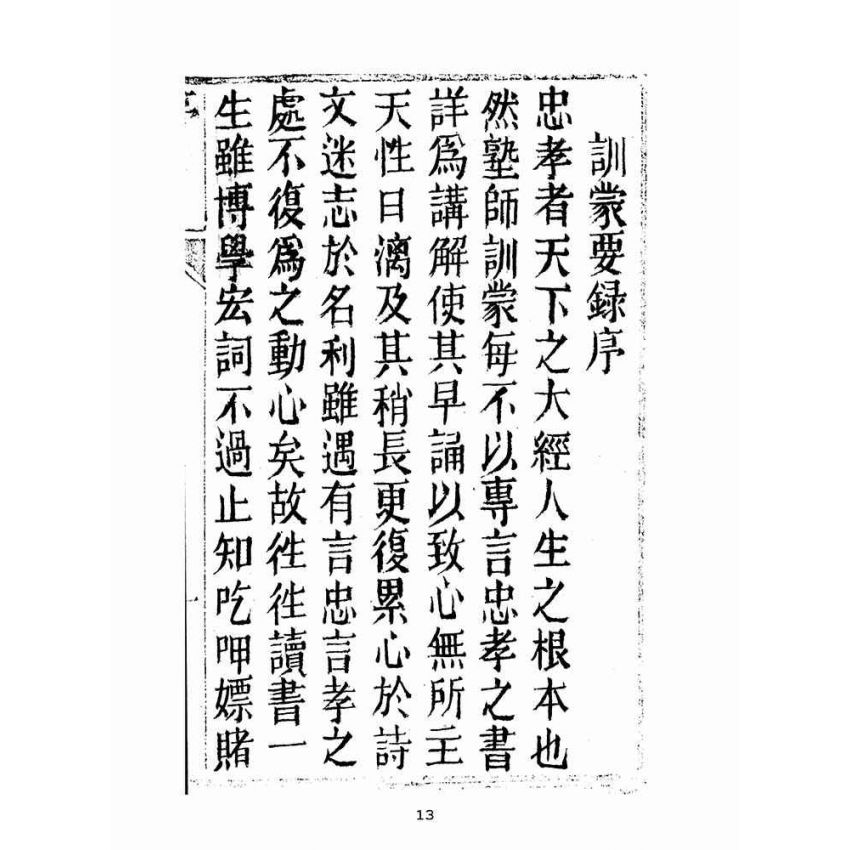 訓蒙要録序
忠孝者天下之大經人生之根本也
然塾師訓蒙每不以專言忠孝之書
詳爲講解使其早誦以致心無所主
天性日漓及其稍長更復累心於詩
文迷志於名利雖遇有言忠言孝之
處不復爲之動心矣故徃徃讀書一
生雖博學宏詞不過止知吃呷嫖賭
13